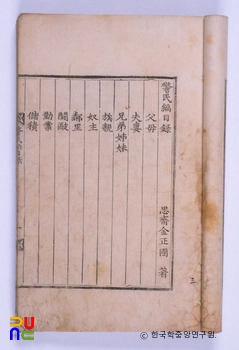 警民編目録
父母
夫妻
兄弟姉妹
族親
奴主
鄰里
鬪毆
勤業
儲積
思齋金正國 著
三
PUNC
© 한국학중앙연구원